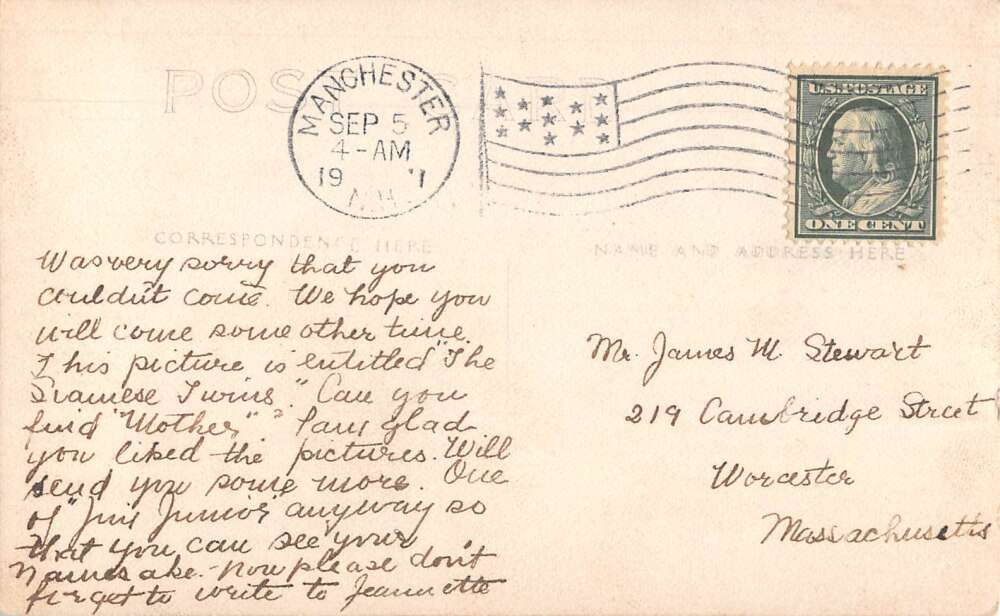 POST CARD
MANCHESTER
SEP 5
4-AM
19 '1
N.H.
U.S. POSTAGE
ONE CENT
CORRESPONDENCE HERE
NAME AND ADDRESS HERE
Was very sorry that you
couldn't come. We hope you
will come some other time.
This picture is entitled "The
Siamese Twins." Can you
find "Mother"? I am glad
you liked the pictures. Will
send you some more. One
of "Jim Junior" anyway so
that you can see your
namesake. Now please don't
forget to write to Jeannette
Mr. James M. Stewart
219 Cambridge Street
Worcester
Massachusetts